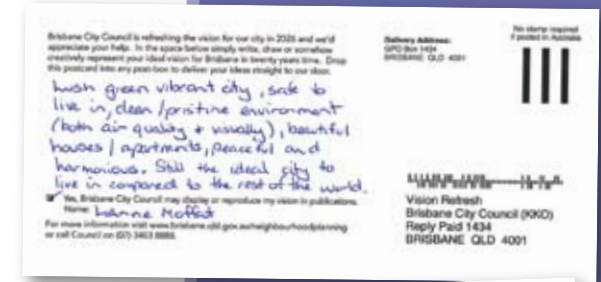 Brisbane City Council is refreshing the vision for our city in 2026 and we'd
appreciate your help. In the space below simply write, draw or somehow
creatively represent your ideal vision for Brisbane in twenty years time. Drop
this postcard into any post-box to deliver your ideas straight to our door.
Lush green vibrant city, safe to
live in, clean/pristine environment
(both air quality + visually), beautiful
houses/apartments, peaceful and
harmonious. Still the ideal city to
live in compared to the rest of the world.
Yes, Brisbane City Council may display or reproduce my vision in publications.
Name: Leanne Moffat
For more information visit www.brisbane.qld.gov.au/neighbourhoodplanning
or call Council on (07) 3403 8888.
Delivery Address:
GPO Box 1434
BRISBANE QLD 4001
No stamp required
if posted in Australia
Vision Refresh
Brisbane City Council (KKO)
Reply Paid 1434
BRISBANE QLD 4001